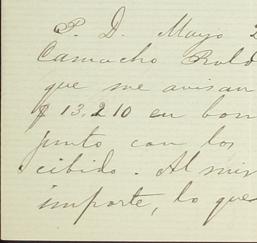 P. D. Mayo 2
Camacho Rold
que me avisan
$ 13.210 en bon
junto con los
cibido. Al mis
importe, lo que